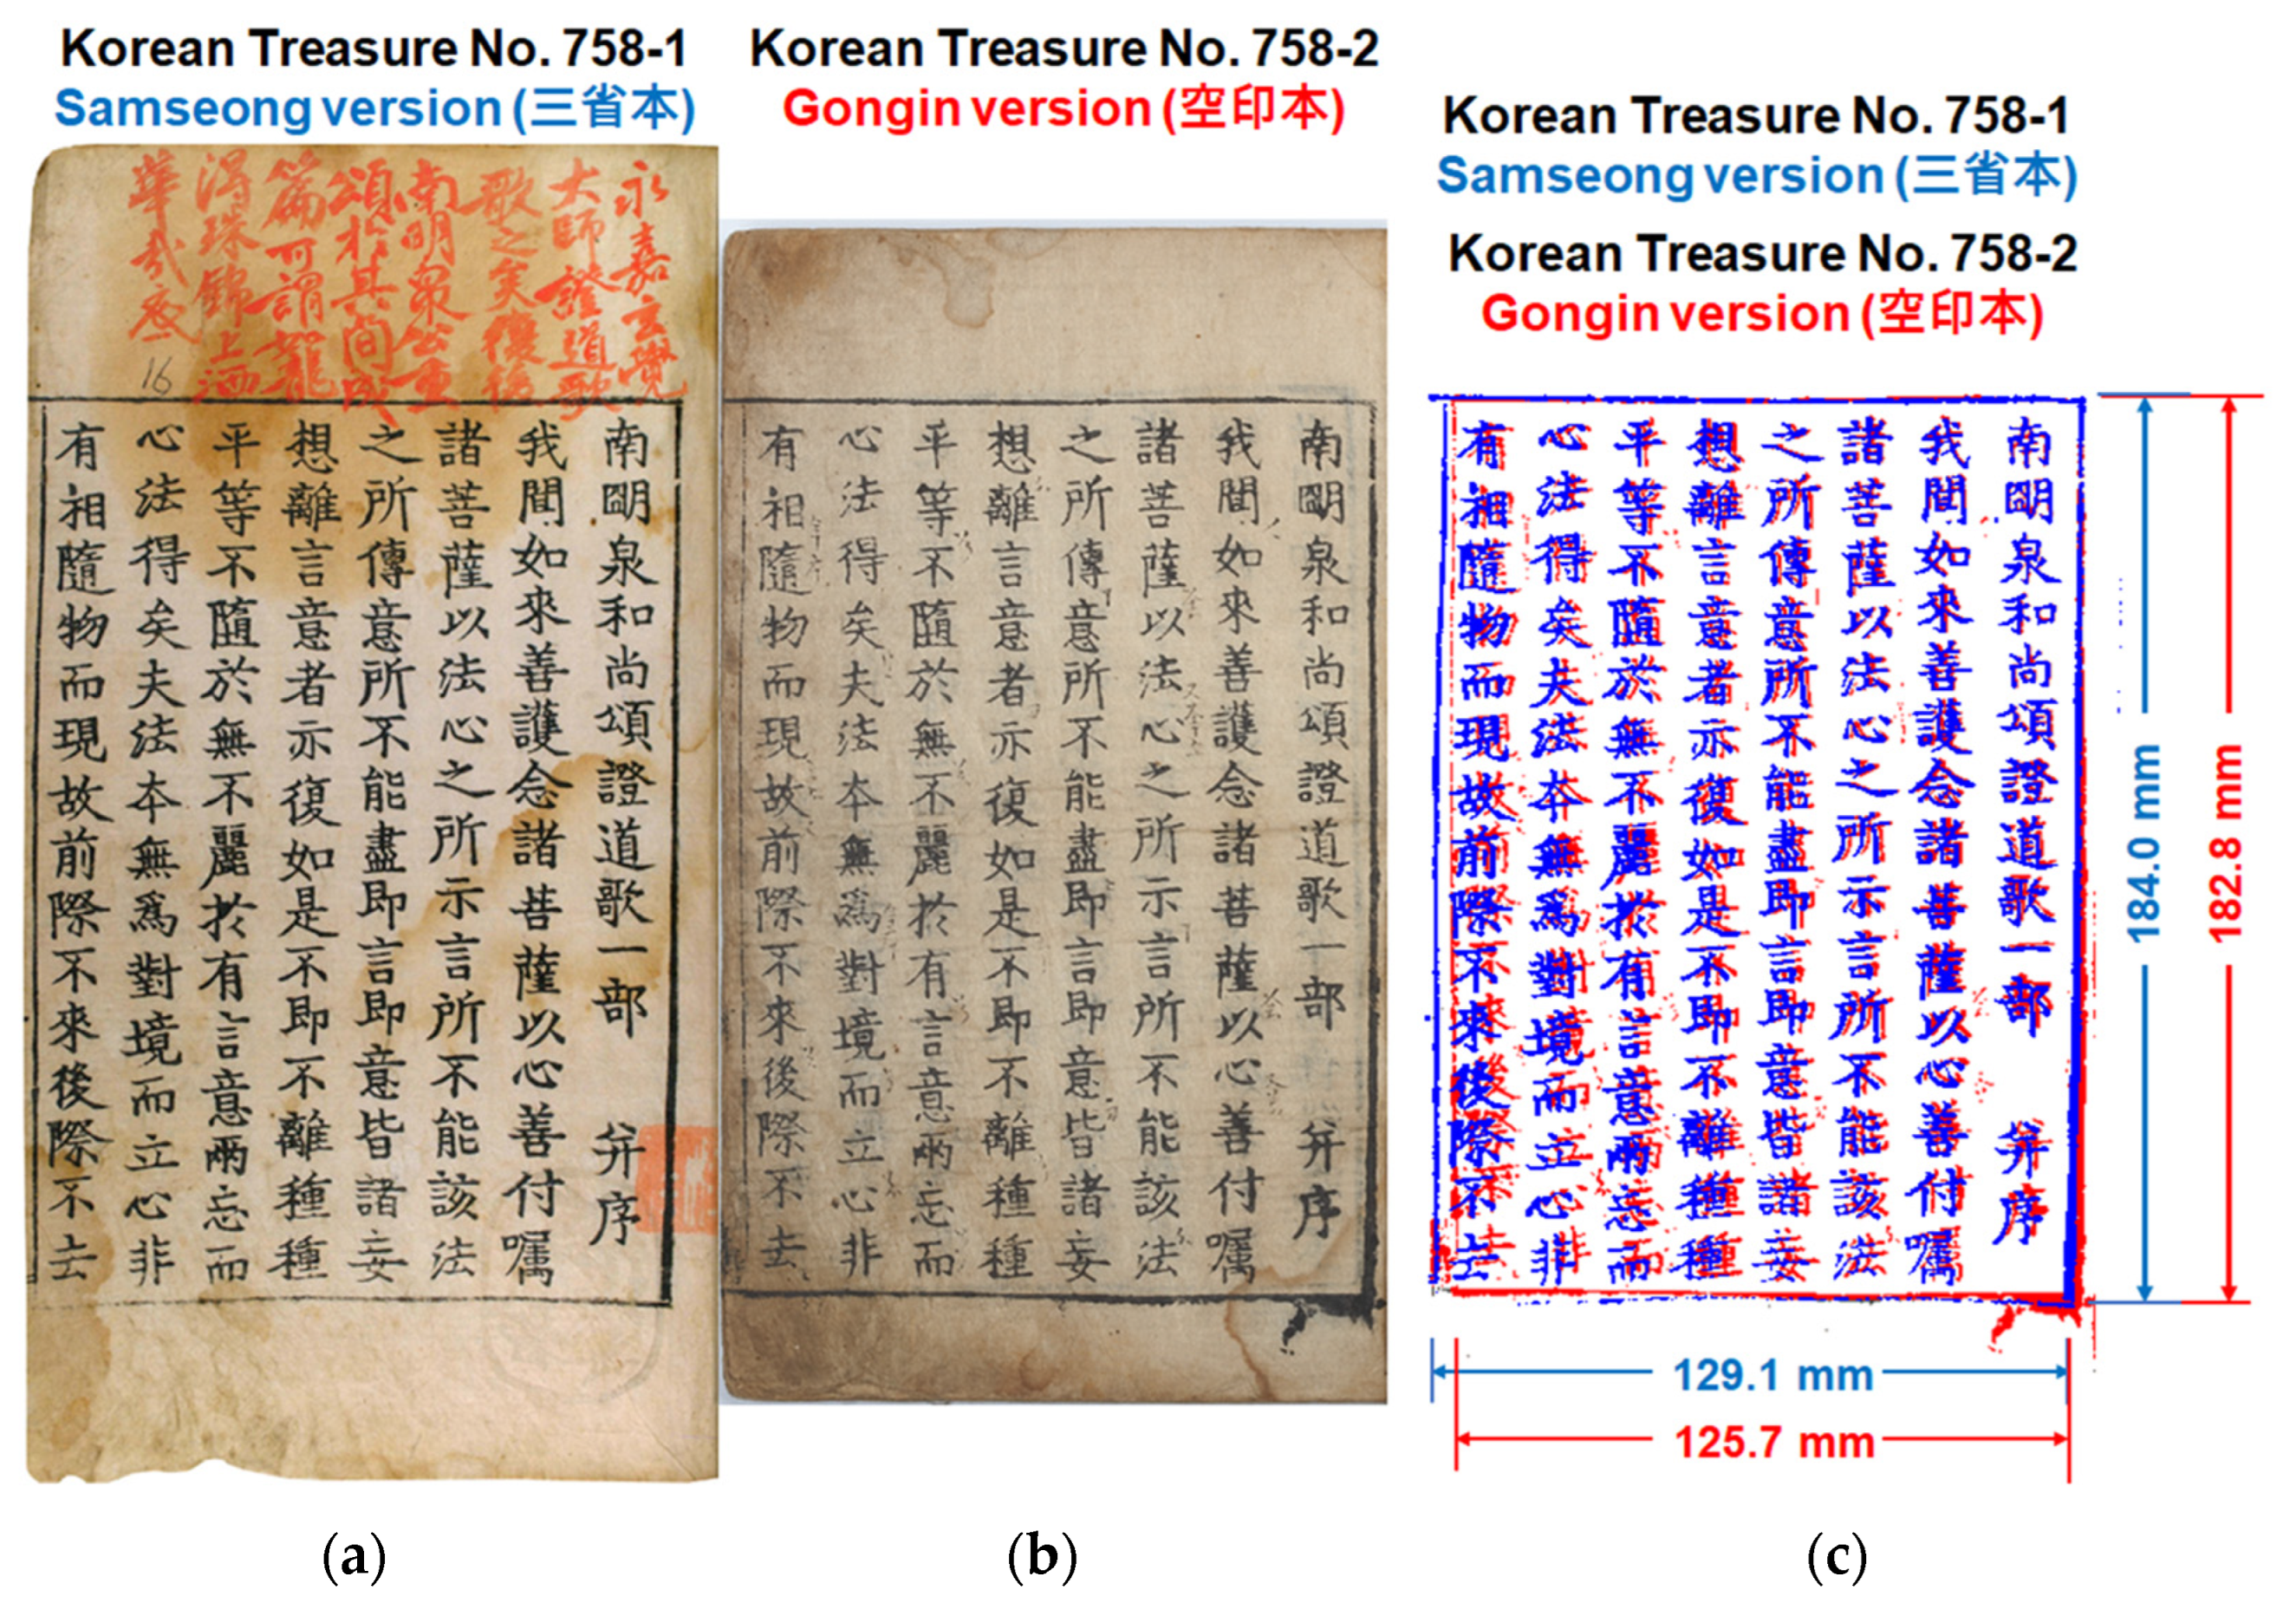 Korean Treasure No. 758-1
Samseong version (三省本)
永嘉玄覺
大師證道歌
歌之矣復後
南明泉公重
頌於其間成
篇可謂龍
得珠錦上
華哉
16
南朙泉和尚頌證道歌一部 并序
我聞如來善護念諸菩薩以心善付囑
諸菩薩以法心之所示言所不能該法
之所傳意所不能盡即言即意皆諸妄
想離言意者亦復如是不即不離種種
平等不隨於無不麗於有言意兩忘而
心法得矣夫法本無爲對境而立心非
有相隨物而現故前際不來後際不去
(a)
Korean Treasure No. 758-2
Gongin version (空印本)
南朙泉和尚頌證道歌一部 并序
我聞如來善護念諸菩薩以心善付囑
諸菩薩以法心之所示言所不能該法
之所傳意所不能盡即言即意皆諸妄
想離言意者亦復如是不即不離種種
平等不隨於無不麗於有言意兩忘而
心法得矣夫法本無爲對境而立心非
有相隨物而現故前際不來後際不去
(b)
Korean Treasure No. 758-1
Samseong version (三省本)
Korean Treasure No. 758-2
Gongin version (空印本)
南朙泉和尚頌證道歌一部 并序
我聞如來善護念諸菩薩以心善付囑
諸菩薩以法心之所示言所不能該法
之所傳意所不能盡即言即意皆諸妄
想離言意者亦復如是不即不離種種
平等不隨於無不麗於有言意兩忘而
心法得矣夫法本無爲對境而立心非
有相隨物而現故前際不來後際不去
184.0 mm
182.8 mm
129.1 mm
125.7 mm
(c)